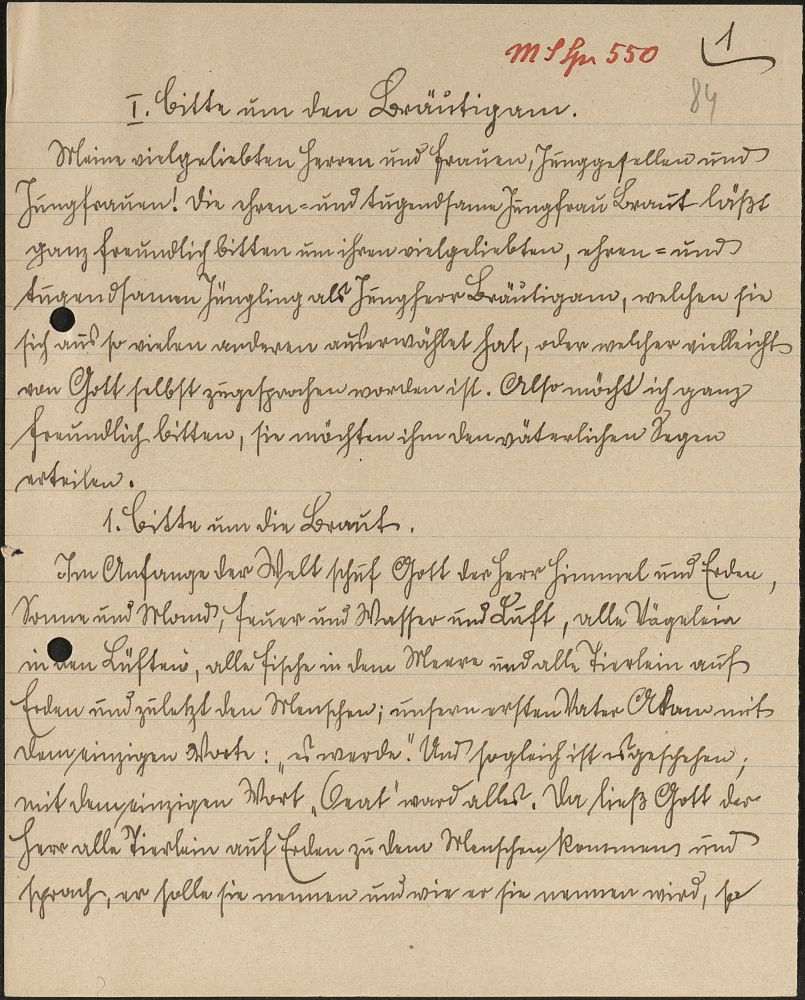 MS Spr 550
1
84
I. Bitte um den Bräutigam.
Meine vielgeliebten Herren und Frauen, Junggesellen und
Jungfrauen! Die ehren= und tugendsame Jungfrau Braut läßt
ganz freundlich bitten um ihren vielgeliebten, ehren= und
tugendsamen Jüngling als Jungherr Bräutigam, welchen sie
sich aus so vielen anderen auserwählet hat, oder welcher vielleicht
von Gott selbst zugesprochen worden ist. Also möcht' ich ganz
freundlich bitten, sie möchten ihm den väterlichen Segen
erteilen.
1. Bitte um die Braut.
Im Anfange der Welt schuf Gott der Herr Himmel und Erden,
Sonne und Mond, Feuer und Wasser und Luft, alle Vögelein
in den Lüften, alle Fische in dem Meere und alle Tierlein auf
Erden und zuletzt den Menschen; unsern ersten Vater Adam mit
dem einzigen Worte: „es werde". Und sogleich ist es geschehen;
mit dem einzigen Wort „Creat" ward alles. Da ließ Gott der
Herr alle Tierlein auf Erden zu dem Menschen kommen und
sprach, er solle sie nennen und wie er sie nennen wird, so